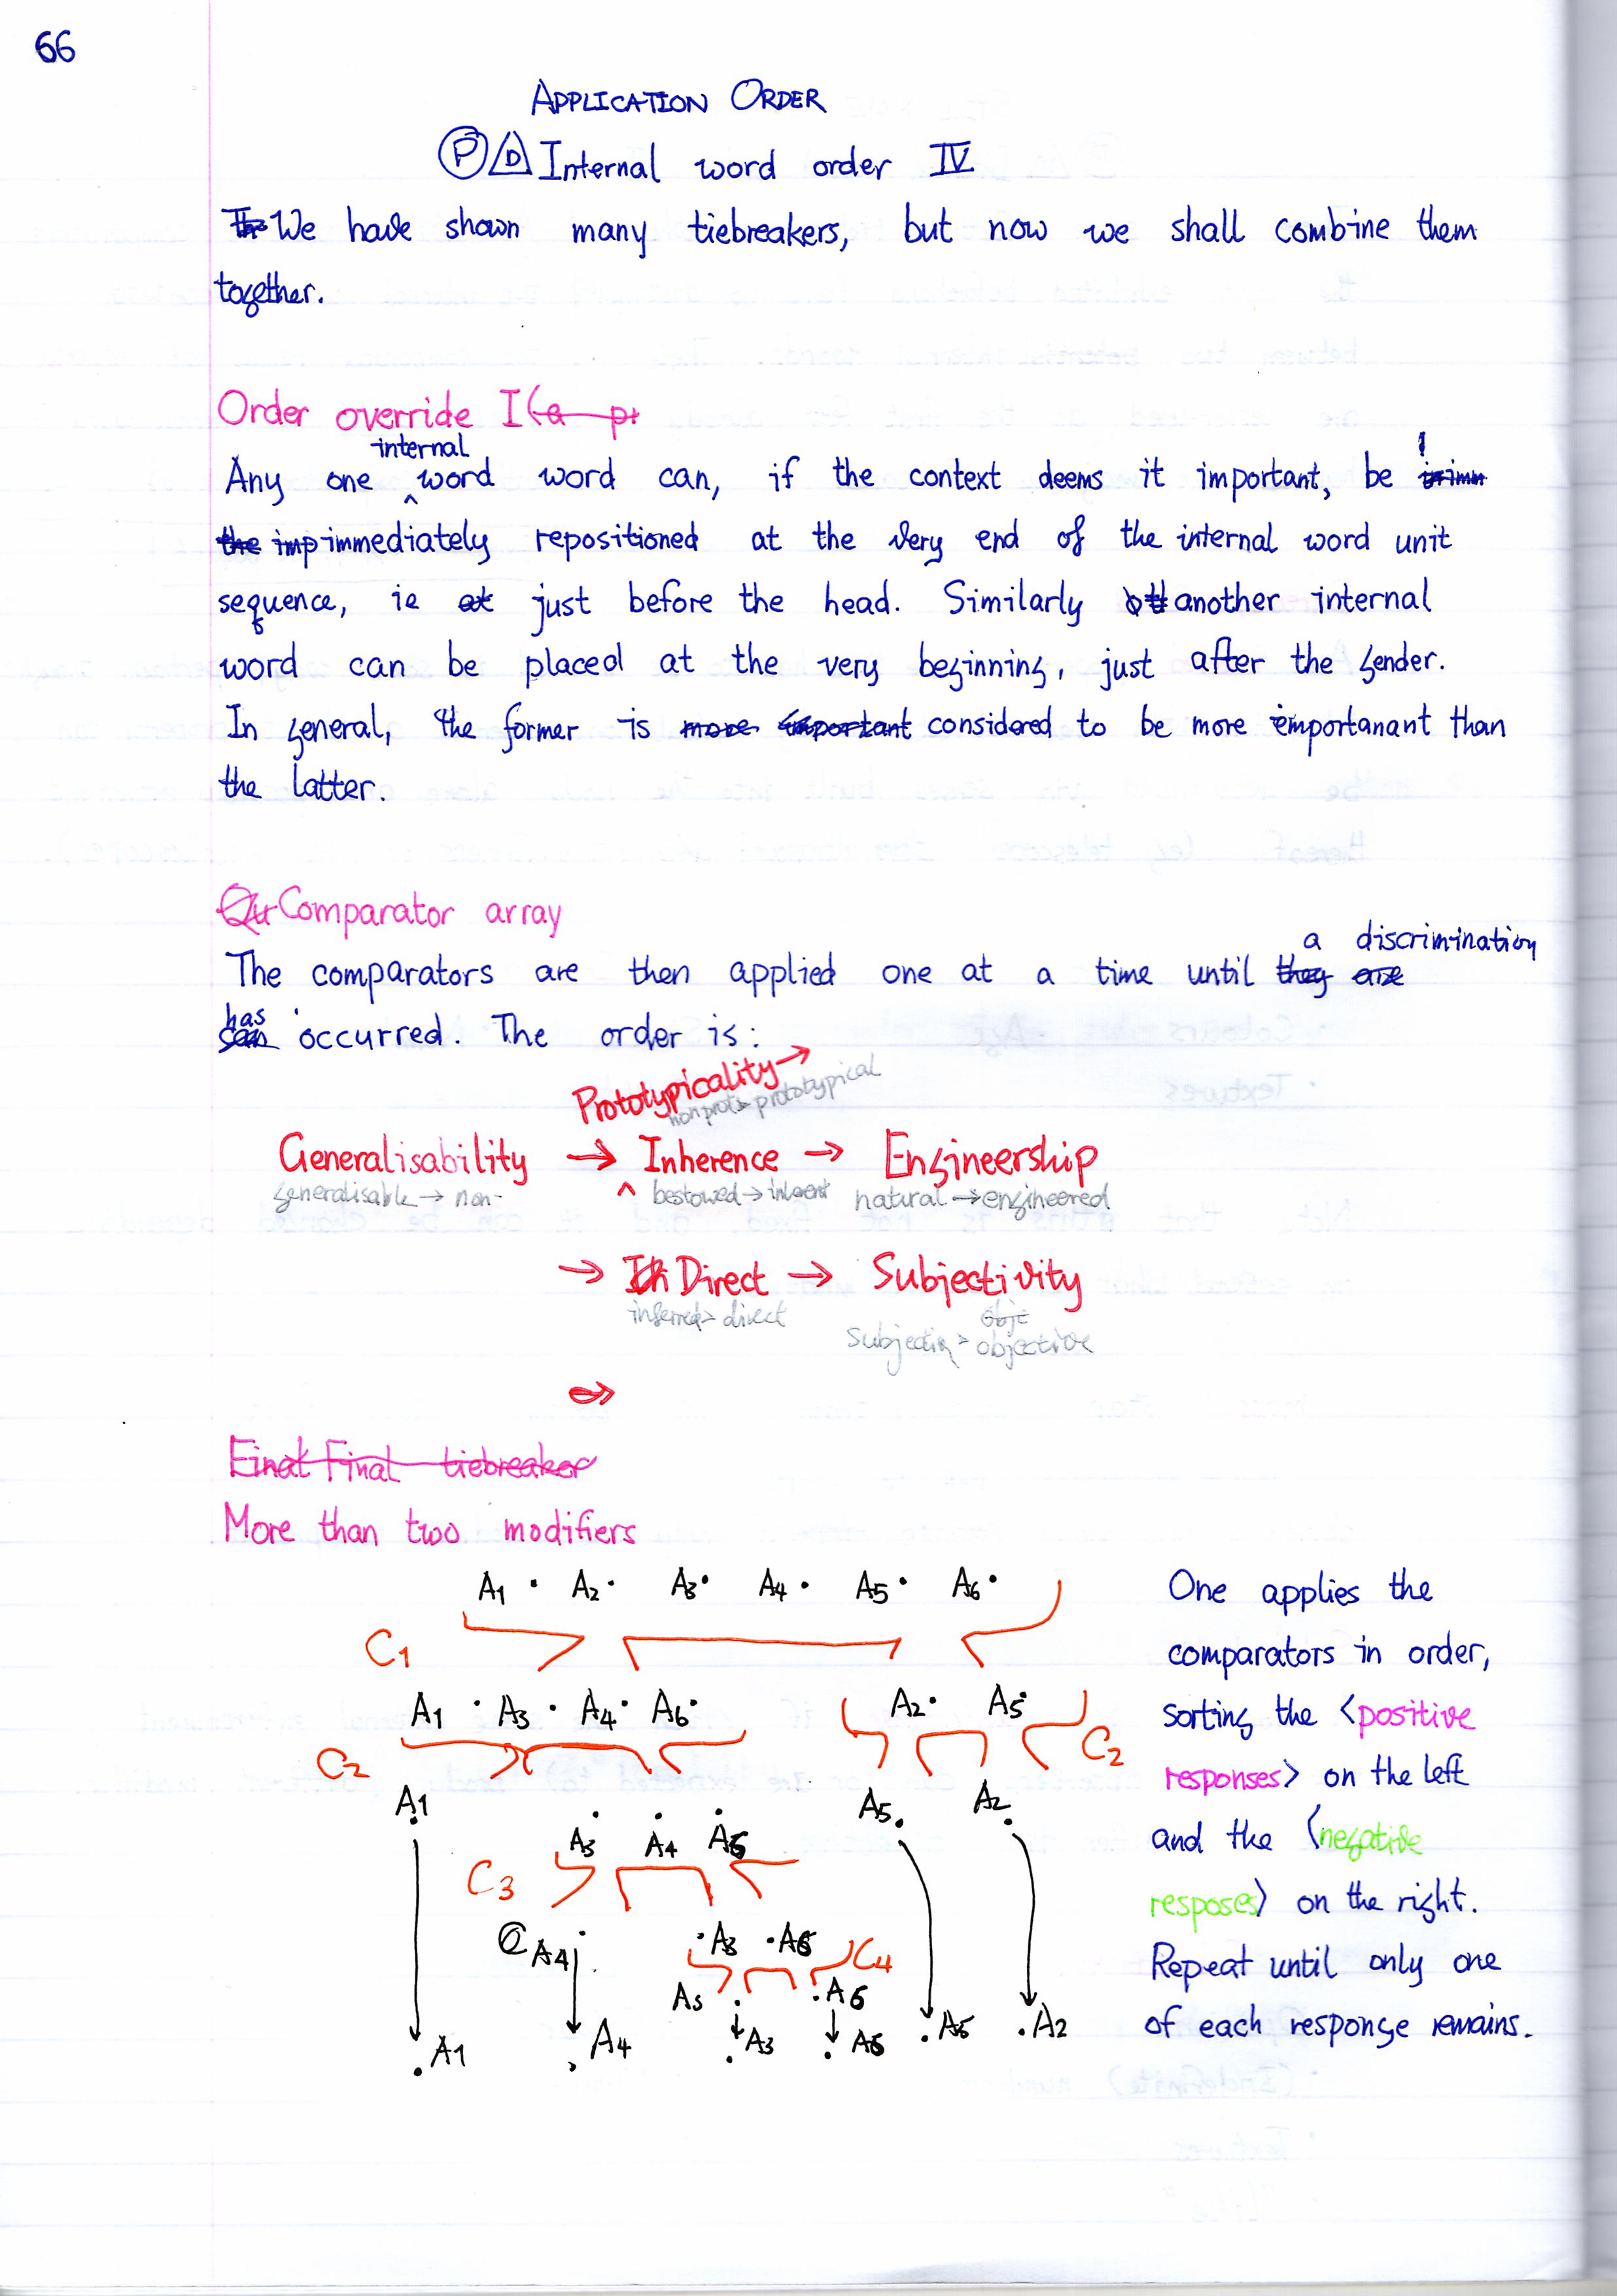 66
APPLICATION ORDER
P D Internal word order IV
We have shown many tiebreakers, but now we shall combine them
together.
Order override I
internal
Any one word word can, if the context deems it important, be
immediately repositioned at the very end of the internal word unit
sequence, ie just before the head. Similarly another internal
word can be placed at the very beginning, just after the gender.
In general, the former is considered to be more emportanant than
the latter.
Comparator array
a discrimination
The comparators are then applied one at a time until
has occurred. The order is:
Prototypicality →
nonprot > prototypical
Generalisability → Inherence → Engineership
generalisable → non- ^ bestowed → inherent natural → engineered
→ Direct → Subjectivity
inferred > direct
> objective
Final tiebreaker
More than two modifiers
A1 · A2 · A3 · A4 · A5 · A6 ·
C1
A1 · A3 · A4 · A6 · A2 · A5 ·
C2 C2
A1 A5 A2
A3 A4 A6
C3
A4 A3 A6
C4
A3 A6
A1 A4 A3 A6 A5 A2
One applies the
comparators in order,
sorting the <positive
responses> on the left
and the <negative
resposes> on the right.
Repeat until only one
of each response remains.